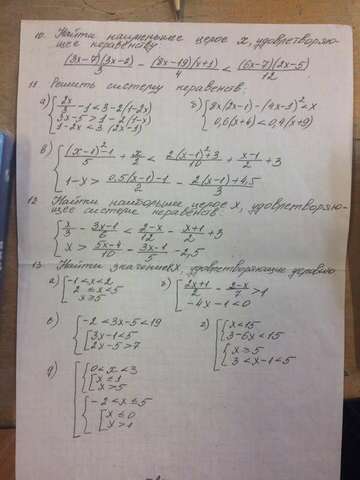 10. Найти наименьшее целое x, удовлетворяю-
щее неравенству
(3x-7)(3x-2)/3 - (8x-19)(x+1)/4 < (6x-7)(2x-5)/12
11 Решить систему неравенств:
а) { 2x/3 - 1 < 3-2(1-2x)
3x-5 > 1-2(1-x)
1-2x < 3(2x-1)
б) { 8x(2x-1) - (4x-1)² < x
0,6(x+4) < 0,4(x+9)
в) { ((x-1)²-1)/5 + x/2 < (2(x-1)²+3)/10 + (x-1)/2 + 3
1-x > (0,5(x-1)-1)/2 - (2(x-1)+4,5)/3
12 Найти наибольшее целое x, удовлетворяю-
щее системе неравенств
{ x/3 - (3x-1)/6 < (2-x)/12 - (x+1)/2 + 3
x > (5x-4)/10 - (3x-1)/5 - 2,5
13 Найти значение x, удовлетворяющие условию
а) { -1<x<2
2≤x<5
x≥5
б) { (2x+1)/2 - (2-x)/7 > 1
-4x-1<0
в) { -2<3x-5<19
[ 3x-1<5
2x-5>7
г) [ { x<15
3-6x<15
{ x≥5
3<x-1<5
д) { { 0<x<3
[ x≤1
x>5
{ -2<x≤5
[ x≤0
x>1